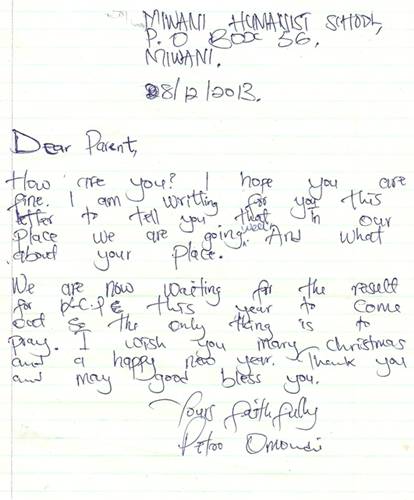 MIWANI HUMANIST SCHOOL,
P. O BOX 56,
MIWANI.
08/12/2013.
Dear Parent,
How are you? I hope you are
fine. I am writting for you this
letter to tell you that in our
place we are going well. And what
about your place.
We are now waiting for the result
for k.C.P.E this year to come
out & the only thing is to
pray. I wish you mary christmas
and a happy new year. Thank you
and may good bless you.
Yours faithfully
Petro Omondi